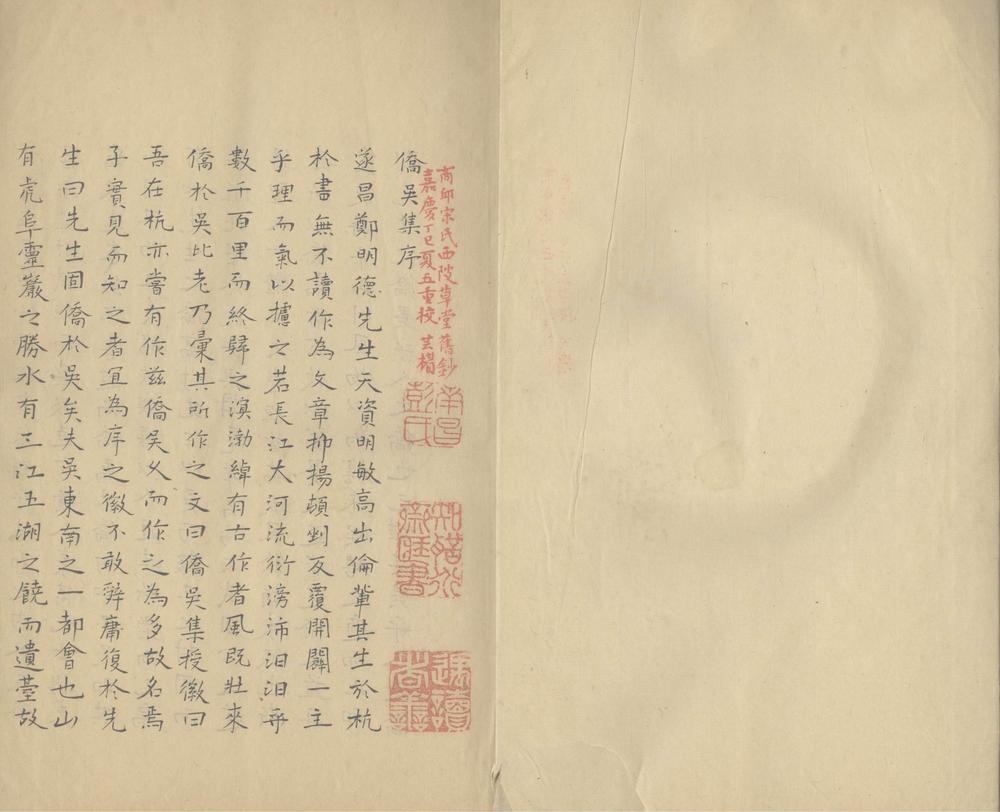 商邱宋氏西陂草堂舊鈔
嘉慶丁巳夏五重校 芸楣
南昌
彭氏
知聖道
齋藏書
遇讀
者善
僑吳集序
遂昌鄭明德先生天資明敏高出倫輩其生於杭
於書無不讀作為文章抑揚頓剉反覆開闢一主
乎理而氣以攄之若長江大河流衍滂沛汩汩乎
數千百里而終歸之溟渤綽有古作者風既壯來
僑於吳比老乃彙其所作之文曰僑吳集授徽曰
吾在杭亦嘗有作兹僑吳久而作之為多故名焉
子實見而知之者宜為序之徽不敢辤庸復於先
生曰先生固僑於吳矣夫吳東南之一都會也山
有虎阜靈巖之勝水有三江五湖之饒而遺臺故